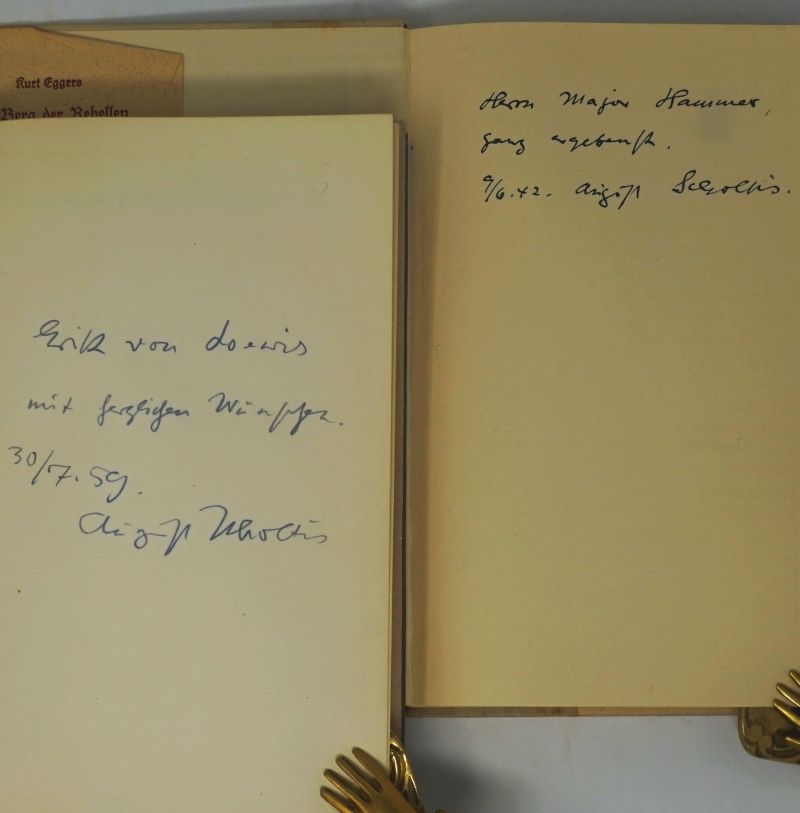 Kurt Eggers
Berg der Rebellen
Herrn Major Hammer,
ganz ergebenst.
9/6.42. August Scholtis.
Erik von Loewis
mit herzlichen Wünschen.
30/7.59.
August Scholtis